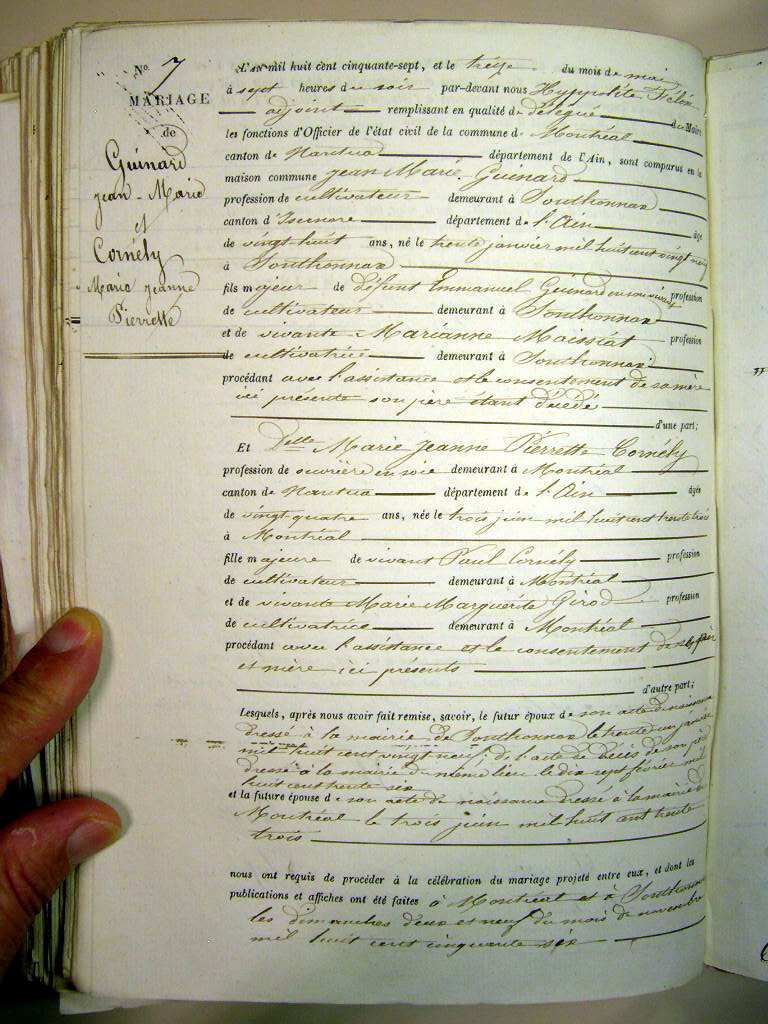 N.º 7
MARIAGE
de
Guinard
Jean-Marie
et
Cornély
Marie Jeanne
Pierrette
L'AN mil huit cent cinquante-sept, et le treize du mois de mai
à sept heures du soir par-devant nous Hyppolite
adjoint remplissant en qualité de délégué du Maire
les fonctions d'Officier de l'état civil de la commune de Montréal
canton de Nantua département de l'Ain, sont comparus en la
maison commune Jean Marie Guinard
profession de cultivateur demeurant à Sonthonnax
canton d'Isernore département de l'Ain âgé
de vingt huit ans, né le trente janvier mil huit cent vingt neuf
à Sonthonnax
fils majeur de défunt Emmanuel Guinard en son vivant profession
de cultivateur demeurant à Sonthonnax
et de vivante Marianne Maissiat profession
de cultivatrice demeurant à Sonthonnax
procédant avec l'assistance et le consentement de sa mère
ici présente son père étant décédé
d'une part;
Et Delle Marie Jeanne Pierrette Cornély
profession de ouvrière en soie demeurant à Montréal
canton de Nantua département de l'Ain âgée
de vingt quatre ans, née le trois juin mil huit cent trente trois
à Montréal
fille majeure de vivant Paul Cornély profession
de cultivateur demeurant à Montréal
et de vivante Marie Marguerite Girod profession
de cultivatrice demeurant à Montréal
procédant avec l'assistance et le consentement de ses père
et mère ici présents
d'autre part;
Lesquels, après nous avoir fait remise, savoir, le futur époux de son acte de naissance
dressé à la mairie de Sonthonnax le trente un janvier
mil huit cent vingt neuf, de l'acte de décès de son père
dressé à la mairie du même lieu le dix sept février mil
huit cent trente six
et la future épouse de son acte de naissance dressé à la mairie de
Montréal le trois juin mil huit cent trente
trois
nous ont requis de procéder à la célébration du mariage projeté entre eux, et dont les
publications et affiches ont été faites à Montréal et à Sonthonnax
les dimanches deux et neuf du mois de novembre
mil huit cent cinquante six